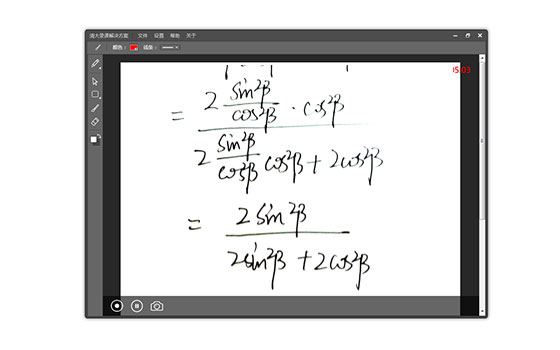 文件 设置 帮助 关于
颜色: 线条:
5:03
= 2 sin²β/cos²β · cos²β
2 sin²β/cos²β cos²β + 2cos²β
= 2sin²β
2sin²β + 2cos²β